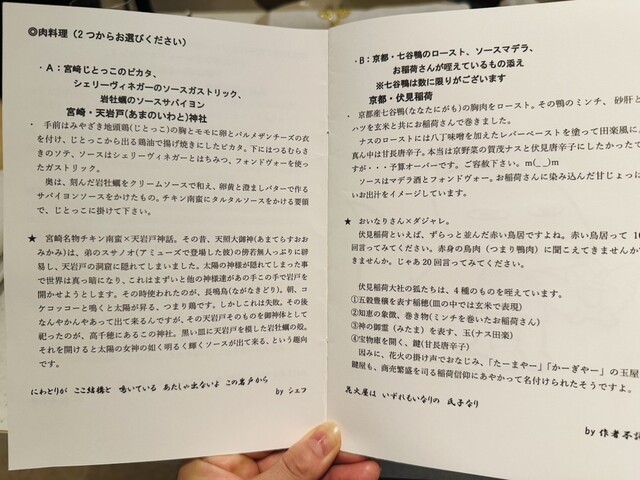 ◎肉料理（2つからお選びください）
・A：宮崎じとっこのピカタ、
シェリーヴィネガーのソースガストリック、
岩牡蠣のソースサバイヨン
宮崎・天岩戸(あまのいわと)神社
・ 手前はみやざき地頭鶏(じとっこ)の胸とモモに卵とパルメザンチーズの衣
を付け、じとっこから出る鶏油で揚げ焼きにしたピカタ。下にはつるむらさ
きのソテ、ソースはシェリーヴィネガーとはちみつ、フォンドヴォーを使っ
たガストリック。
奥は、刻んだ岩牡蠣をクリームソースで和え、卵黄と澄ましバターで作る
サバイヨンソースをかけたもの。チキン南蛮にタルタルソースをかける要領
で、じとっこに掛けて下さい。
★ 宮崎名物チキン南蛮×天岩戸神話。その昔、天照大御神(あまてらすおお
みかみ)は、弟のスサノオ(アミューズで登場した彼)の傍若無人っぷりに辟
易し、天岩戸の洞窟に隠れてしまいました。太陽の神様が隠れてしまった事
で世界は真っ暗になり、これはまずいと他の神様達があの手この手で岩戸を
開かせようとします。その時使われたのが、長鳴鳥(ながなきどり)。朝、コ
ケコッコーと鳴くと太陽が昇る、つまり鶏です。しかしこれは失敗。その後
なんやかんやあって出て来るんですが、その天岩戸そのものを御神体として
祀ったのが、高千穂にあるこの神社。黒い皿に天岩戸を模した岩牡蠣の殻。
それを開けると太陽の女神の如く明るく輝くソースが出て来る、という趣向
です。
にわとりが ここ結構と 鳴いている あたしゃ出ないよ この岩戸から
by シェフ
・B：京都・七谷鴨のロースト、ソースマデラ、
お稲荷さんが咥えているもの添え
※七谷鴨は数に限りがございます
京都・伏見稲荷
・ 京都産七谷鴨(ななたにがも)の胸肉をロースト。その鴨のミンチ、砂肝と
ハツを玄米と共にお稲荷さんで巻きました。
ナスのローストには八丁味噌を加えたレバーペーストを塗って田楽風に。
真ん中は甘長唐辛子。本当は京野菜の賀茂ナスと伏見唐辛子にしたかったで
すが・・・予算オーバーです。ご容赦下さい。m(_ _)m
ソースはマデラ酒とフォンドヴォー。お稲荷さんに染み込んだ甘じょっぱ
いお出汁をイメージしています。
★ おいなりさん×ダジャレ。
伏見稲荷といえば、ずらっと並んだ赤い鳥居ですよね。赤い鳥居って 10
回言ってみてください。赤身の鳥肉（つまり鴨肉）に聞こえてきませんか
きませんか。じゃあ20回言ってみてください。
伏見稲荷大社の狐たちは、4種のものを咥えています。
①五穀豊穣を表す稲穂(皿の中では玄米で表現)
②知恵の象徴、巻き物(ミンチを巻いたお稲荷さん)
③神の御霊（みたま）を表す、玉(ナス田楽)
④宝物庫を開く、鍵(甘長唐辛子)
因みに、花火の掛け声でおなじみ、「たーまやー」「かーぎやー」の玉屋
鍵屋も、商売繁盛を司る稲荷信仰にあやかって名付けられたそうですよ。
花火屋は いずれもいなりの 氏子なり
by 作者不詳